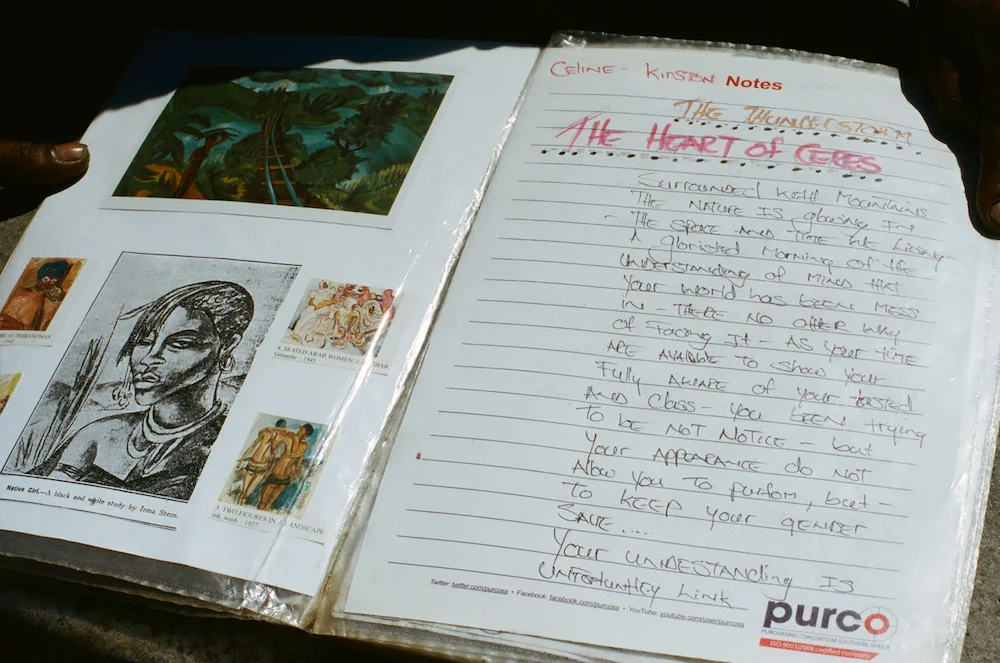 AFRICAN TRIBESWOMAN
4. SEATED ARAB WOMEN, ZANZIBAR
Gouache - 1945
Native Girl.—A black and white study by Irma Stern.
3. TWO FIGURES IN A LANDSCAPE
ink, wash - 1927
CELINE - KIRSTEN Notes
THE THUNDERSTORM
THE HEART OF CERES
Surrounded world Mountains
THE NATURE IS glowing In
- THE SPACE AND TIME WE
A gloristed Morning of life
UNDERSTANDING of MIND THAT
Your world HAS BEEN MESS
IN - THERE NO OTHER WAY
OF FACING IT - AS your TIME
ARE AVAIABLE TO SHOW your
Fully AWARE of your
AND CLASS - YOU BEEN trying
TO BE NOT NOTICE - but
your APPEARANCE DO NOT
Allow you TO purfom, but -
TO KEEP your gENDER
SAVE....
your UNIDESTANDing IS
UNFORTUNTLEY Link
Twitter: twitter.com/purcosa • Facebook: facebook.com/purcosa • YouTube: youtube.com/user/purcosa
purco
PURCHASING CONSORTIUM SOUTHERN AFRICA
ISO 9001:2008 certified company